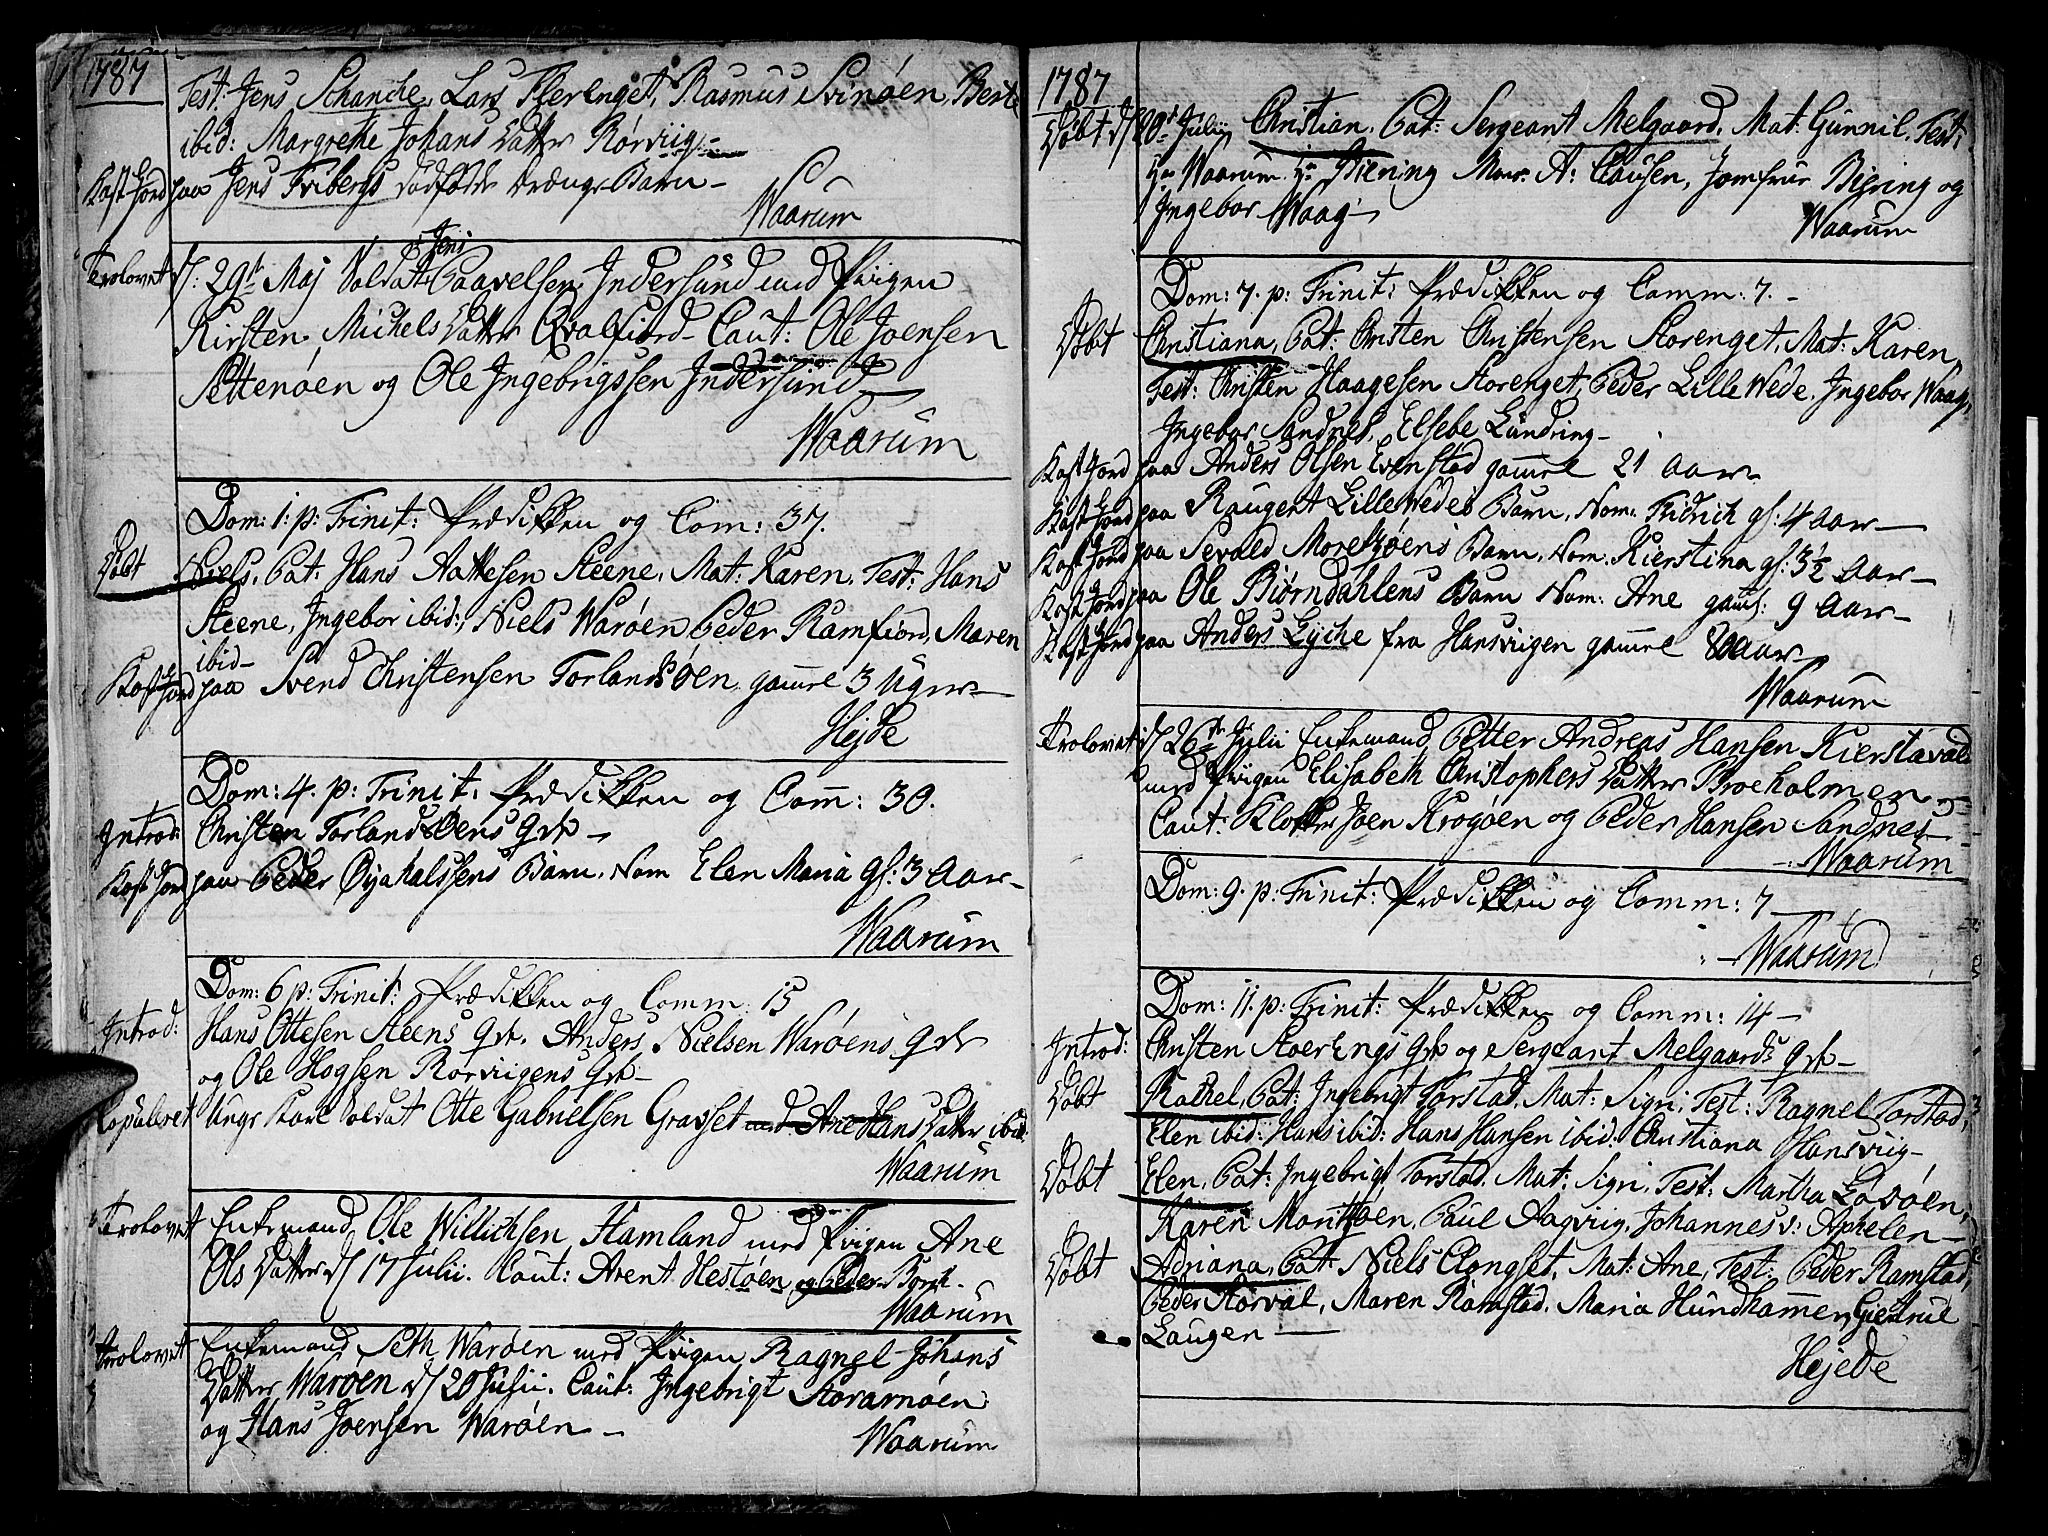 1787
Test: Jens Schanche, Lars Fierenget, Rasmus Svinøen, Berit
ibid: Margrethe Johans Datter Rørviig
Kast Jord paa Jens Fribergs dødfødde Drænge Barn
Waarum
Trolovet d. 29de Maj Soldat Jens Paavelsen Indersund med Pigen
Kirsten Michels Datter Qvalfiord Caut: Ole Joensen
Settenøen og Ole Ingebrigssen Indersund
Waarum
Dom: 1. p: Trinit: Prædikken og Com: 37.
Døbt Niels, Pat: Hans Aattesen Steene, Mat: Karen, Test: Hans
Steene, Ingebor ibid:, Niels Warøen, Peder Ramfiord, Maren
ibid
Kast Jord paa Svend Christensen Torlandsøen gamel 3 Uger
Hejde
Dom: 4. p: Trinit: Prædikken og Comm: 30.
Introd: Christen Torlandsøens Qvde
Kast Jord paa Peder Øyahalssens Barn, Nom Elen Maria gl: 3 Aar
Waarum
Dom: 6 p: Trinit: Prædikken og Comm 15
Introd: Hans Ottesen Steens Qvde, Anders Nielsen Warøens Qvde
og Ole Hogsen Rørviigens Qvde
Copuleret Unge Karl Soldat Otte Gabrielsen Gravset med Ane Hans Datter ibid.
Waarum
Trolovet Enkemand Ole Willichsen Hamland med Pigen Ane
Ols Datter d 17 Julii. Caut: Arent Hestøen og Peder Borch
Waarum
Trolovet Enkemand Seth Warøen med Pigen Ragnel Johans
Datter Warøen d 20 Julii. Caut: Ingebrigt Storarnøen
og Hans Joensen Warøen
Waarum
1787
Døbt d 20de Julii Christian, Pat: Sergeant Melgaard, Mat: Gunnil, Test:
Hr Waarum Hr Biering Monr. A: Clausen, Jomfrue Biering og
Ingebor Waag
Waarum
Dom: 7. p: Trinit: Prædikken og Comm: 7.
Døbt Christiana, Pat: Christen Christensen Storenget, Mat: Karen,
Test: Christen Haagesen Storenget, Peder Lille Wede, Ingebor Waag,
Ingebor Sandnes, Elsebe Lundring
Kast Jord paa Anders Olsen Evenstad gamel 21 Aar
Kast Jord paa Raugert Lille Wedes Barn, Nom: Fridrich gl: 4 Aar
Kast Jord paa Sevald Moretzøens Barn, Nom: Kierstina gl: 3½ Aar
Kast Jord paa Ole Biørndahlens Barn Nom: Ane gaml: 9 Aar
Kast Jord paa Anders Eyche fra Hansviigen gamel 80 Aar
Waarum
Trolovet d 26de Julii Enkemand Petter Andreas Hansen Kierstavald
med Pigen Elisabeth Christophers Datter Broeholmen
Caut: Klokker Joen Krogøen og Peder Hansen Sandnes
Waarum
Dom: 9. p: Trinit: Prædikken og Comm: 7
Waarum
Dom: 11. p: Trinit: Prædikken og Comm: 14
Introd: Christen Stoer Engs Qvde og Sergeant Melgaards Qvde
Døbt Rachel, Pat: Ingebrigt Torstad, Mat: Sigri, Test: Ragnel Torstad,
Elen ibid: Hans ibid: Hans Hansen ibid: Christiana Hansviig
Døbt Elen, Pat: Ingebrigt Torstad, Mat: Sigri, Test: Martha Løsøen,
Karen Moritzøen, Paul Aagviig, Johannes v: Aphelen
Døbt Adriana, Pat: Niels Elongset, Mat: Ane, Test: Peder Ramstad,
Peder Storval, Maren Ramstad, Maria Hundhammer, Giertrue
Laugen
Hejede